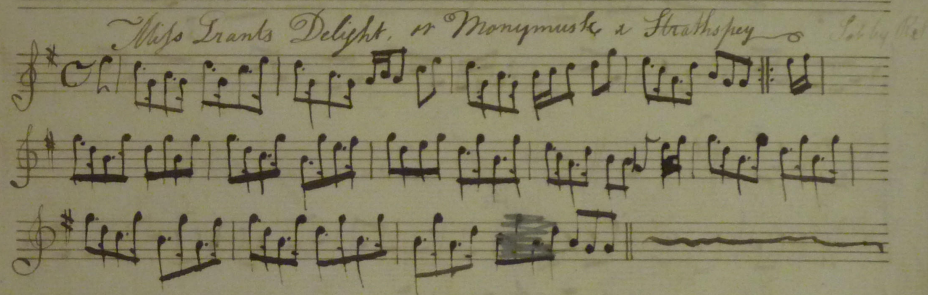 Miss Grants Delight. or Monymusk, a Strathspey